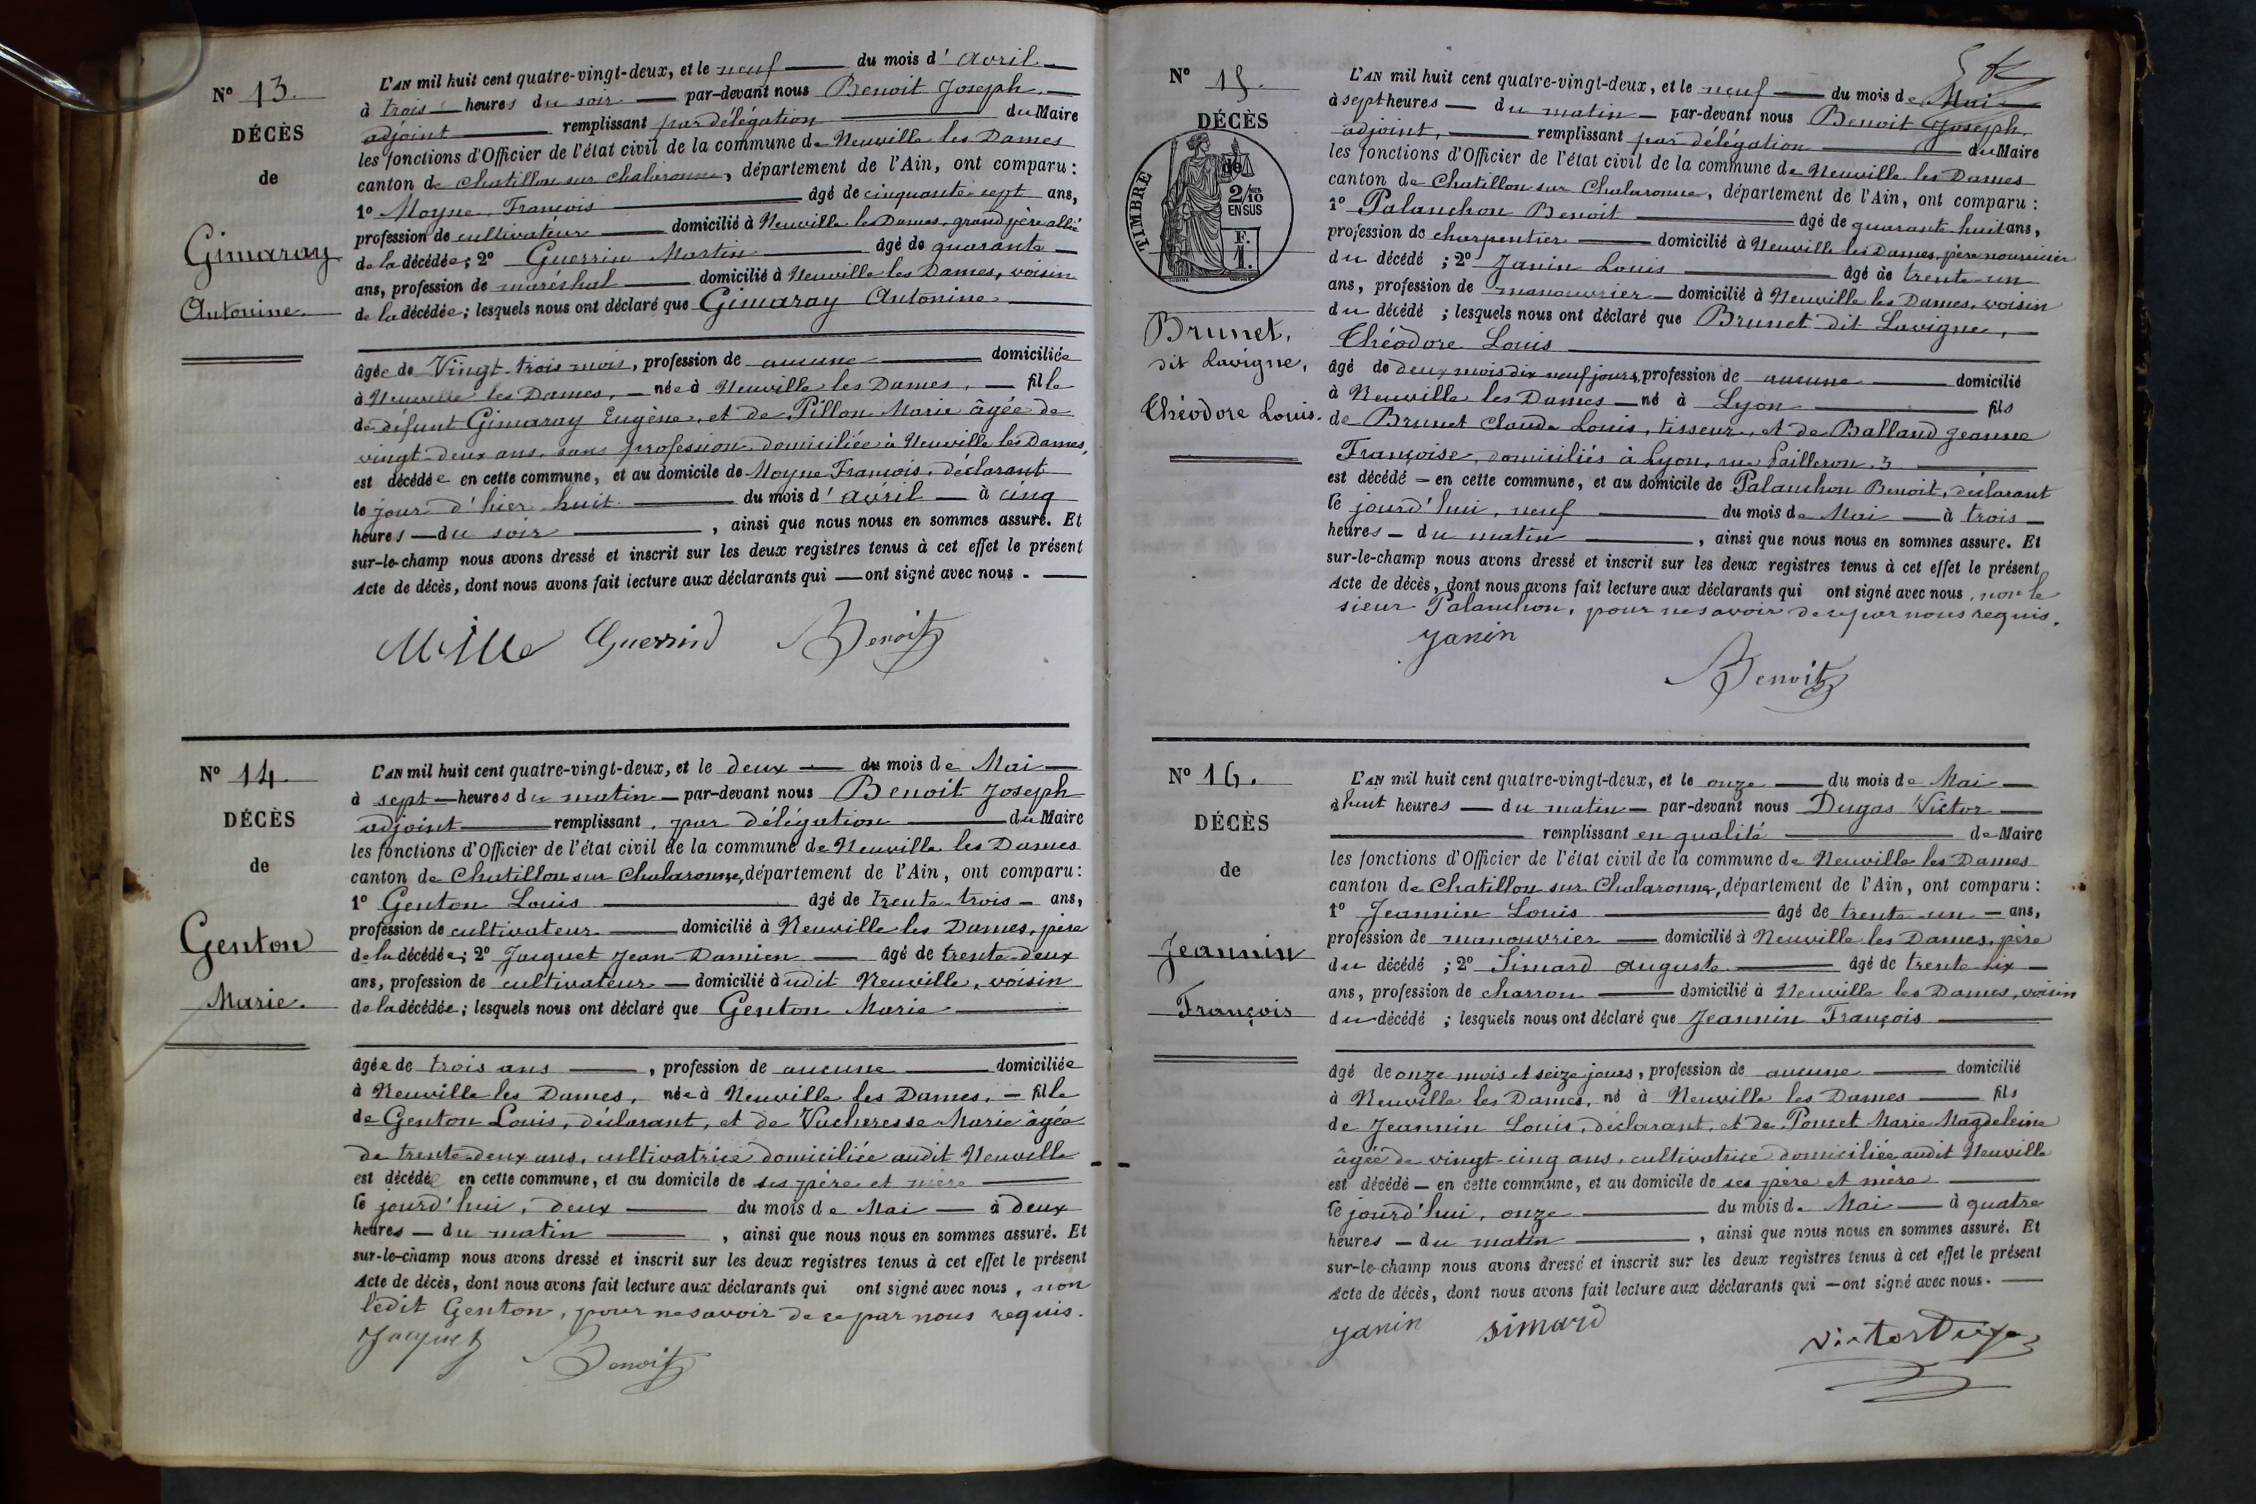 N° 13.
DÉCÈS
de
Gimaray
Antonine.
L'AN mil huit cent quatre-vingt-deux, et le neuf du mois d'avril
à trois heures du soir par-devant nous Benoit Joseph
adjoint remplissant par délégation du Maire
les fonctions d'Officier de l'état civil de la commune de Neuville les Dames
canton de Chatillon sur Chalaronne, département de l'Ain, ont comparu :
1° Moyne François âgé de cinquante-sept ans,
profession de cultivateur domicilié à Neuville les Dames, grand père allié
de la décédée ; 2° Guerrin Martin âgé de quarante
ans, profession de maréchal domicilié à Neuville les Dames, voisin
de la décédée ; lesquels nous ont déclaré que Gimaray Antonine
âgée de Vingt-trois mois, profession de aucune domiciliée
à Neuville les Dames, née à Neuville les Dames, fille
de défunt Gimaray Eugène, et de Pillon Marie âgée de
vingt-deux ans, sans profession domiciliée à Neuville les Dames,
est décédée en cette commune, et au domicile de Moyne François, déclarant
le jour d'hier huit du mois d'avril à cinq
heures du soir, ainsi que nous nous en sommes assuré. Et
sur-le-champ nous avons dressé et inscrit sur les deux registres tenus à cet effet le présent
Acte de décès, dont nous avons fait lecture aux déclarants qui ont signé avec nous.
Guerrin Benoit
N° 14
DÉCÈS
de
Genton
Marie.
L'AN mil huit cent quatre-vingt-deux, et le deux du mois de Mai
à sept heures du matin par-devant nous Benoit Joseph
adjoint remplissant par délégation du Maire
les fonctions d'Officier de l'état civil de la commune de Neuville les Dames
canton de Chatillon sur Chalaronne, département de l'Ain, ont comparu :
1° Genton Louis âgé de trente-trois ans,
profession de cultivateur domicilié à Neuville les Dames, père
de la décédée ; 2° Jacquet Jean Damien âgé de trente-deux
ans, profession de cultivateur domicilié audit Neuville, voisin
de la décédée ; lesquels nous ont déclaré que Genton Marie
âgée de trois ans, profession de aucune domiciliée
à Neuville les Dames, née à Neuville les Dames, fille
de Genton Louis, déclarant, et de Vucheresse Marie âgée
de trente-deux ans, cultivatrice domiciliée audit Neuville
est décédée en cette commune, et au domicile de ses père et mère
le jourd'hui, deux du mois de Mai à deux
heures du matin, ainsi que nous nous en sommes assuré. Et
sur-le-champ nous avons dressé et inscrit sur les deux registres tenus à cet effet le présent
Acte de décès, dont nous avons fait lecture aux déclarants qui ont signé avec nous, non
ledit Genton, pour ne savoir de ce par nous requis.
Jacquet
Benoit
N° 15.
DÉCÈS
de
TIMBRE
2/10
EN SUS
F.
1.
Brunet,
dit Lavigne,
Théodore Louis.
L'AN mil huit cent quatre-vingt-deux, et le neuf du mois de Mai
à sept heures du matin par-devant nous Benoit Joseph
adjoint, remplissant par délégation du Maire
les fonctions d'Officier de l'état civil de la commune de Neuville les Dames
canton de Chatillon sur Chalaronne, département de l'Ain, ont comparu :
1° Palanchon Benoit âgé de quarante-huit ans,
profession de charpentier domicilié à Neuville les Dames, père nourricier
du décédé ; 2° Janin Louis âgé de trente-un
ans, profession de manouvrier domicilié à Neuville les Dames, voisin
du décédé ; lesquels nous ont déclaré que Brunet dit Lavigne,
Théodore Louis
âgé de deux mois dix neuf jours, profession de aucune domicilié
à Neuville les Dames né à Lyon fils
de Brunet Claude Louis, tisseur, et de Balland Jeanne
Françoise, domiciliés à Lyon, rue Pailleron, 3
est décédé en cette commune, et au domicile de Palanchon Benoit, déclarant
le jourd'hui, neuf du mois de Mai à trois
heures du matin, ainsi que nous nous en sommes assuré. Et
sur-le-champ nous avons dressé et inscrit sur les deux registres tenus à cet effet le présent
Acte de décès, dont nous avons fait lecture aux déclarants qui ont signé avec nous, non le
sieur Palanchon, pour ne savoir de ce par nous requis.
Janin
Benoit
N° 16.
DÉCÈS
de
Jeannin
François
L'AN mil huit cent quatre-vingt-deux, et le onze du mois de Mai
à huit heures du matin par-devant nous Dugas Victor
remplissant en qualité de Maire
les fonctions d'Officier de l'état civil de la commune de Neuville les Dames
canton de Chatillon sur Chalaronne, département de l'Ain, ont comparu :
1° Jeannin Louis âgé de trente-un ans,
profession de manouvrier domicilié à Neuville les Dames, père
du décédé ; 2° Simard Auguste âgé de trente-six
ans, profession de charron domicilié à Neuville les Dames, voisin
du décédé ; lesquels nous ont déclaré que Jeannin François
âgé de onze mois et seize jours, profession de aucune domicilié
à Neuville les Dames, né à Neuville les Dames fils
de Jeannin Louis, déclarant, et de Poncet Marie Magdeleine
âgée de vingt-cinq ans, cultivatrice domiciliée audit Neuville
est décédé en cette commune, et au domicile de ses père et mère
le jourd'hui, onze du mois de Mai à quatre
heures du matin, ainsi que nous nous en sommes assuré. Et
sur-le-champ nous avons dressé et inscrit sur les deux registres tenus à cet effet le présent
Acte de décès, dont nous avons fait lecture aux déclarants qui ont signé avec nous.
Janin Simard
Victor Dugas